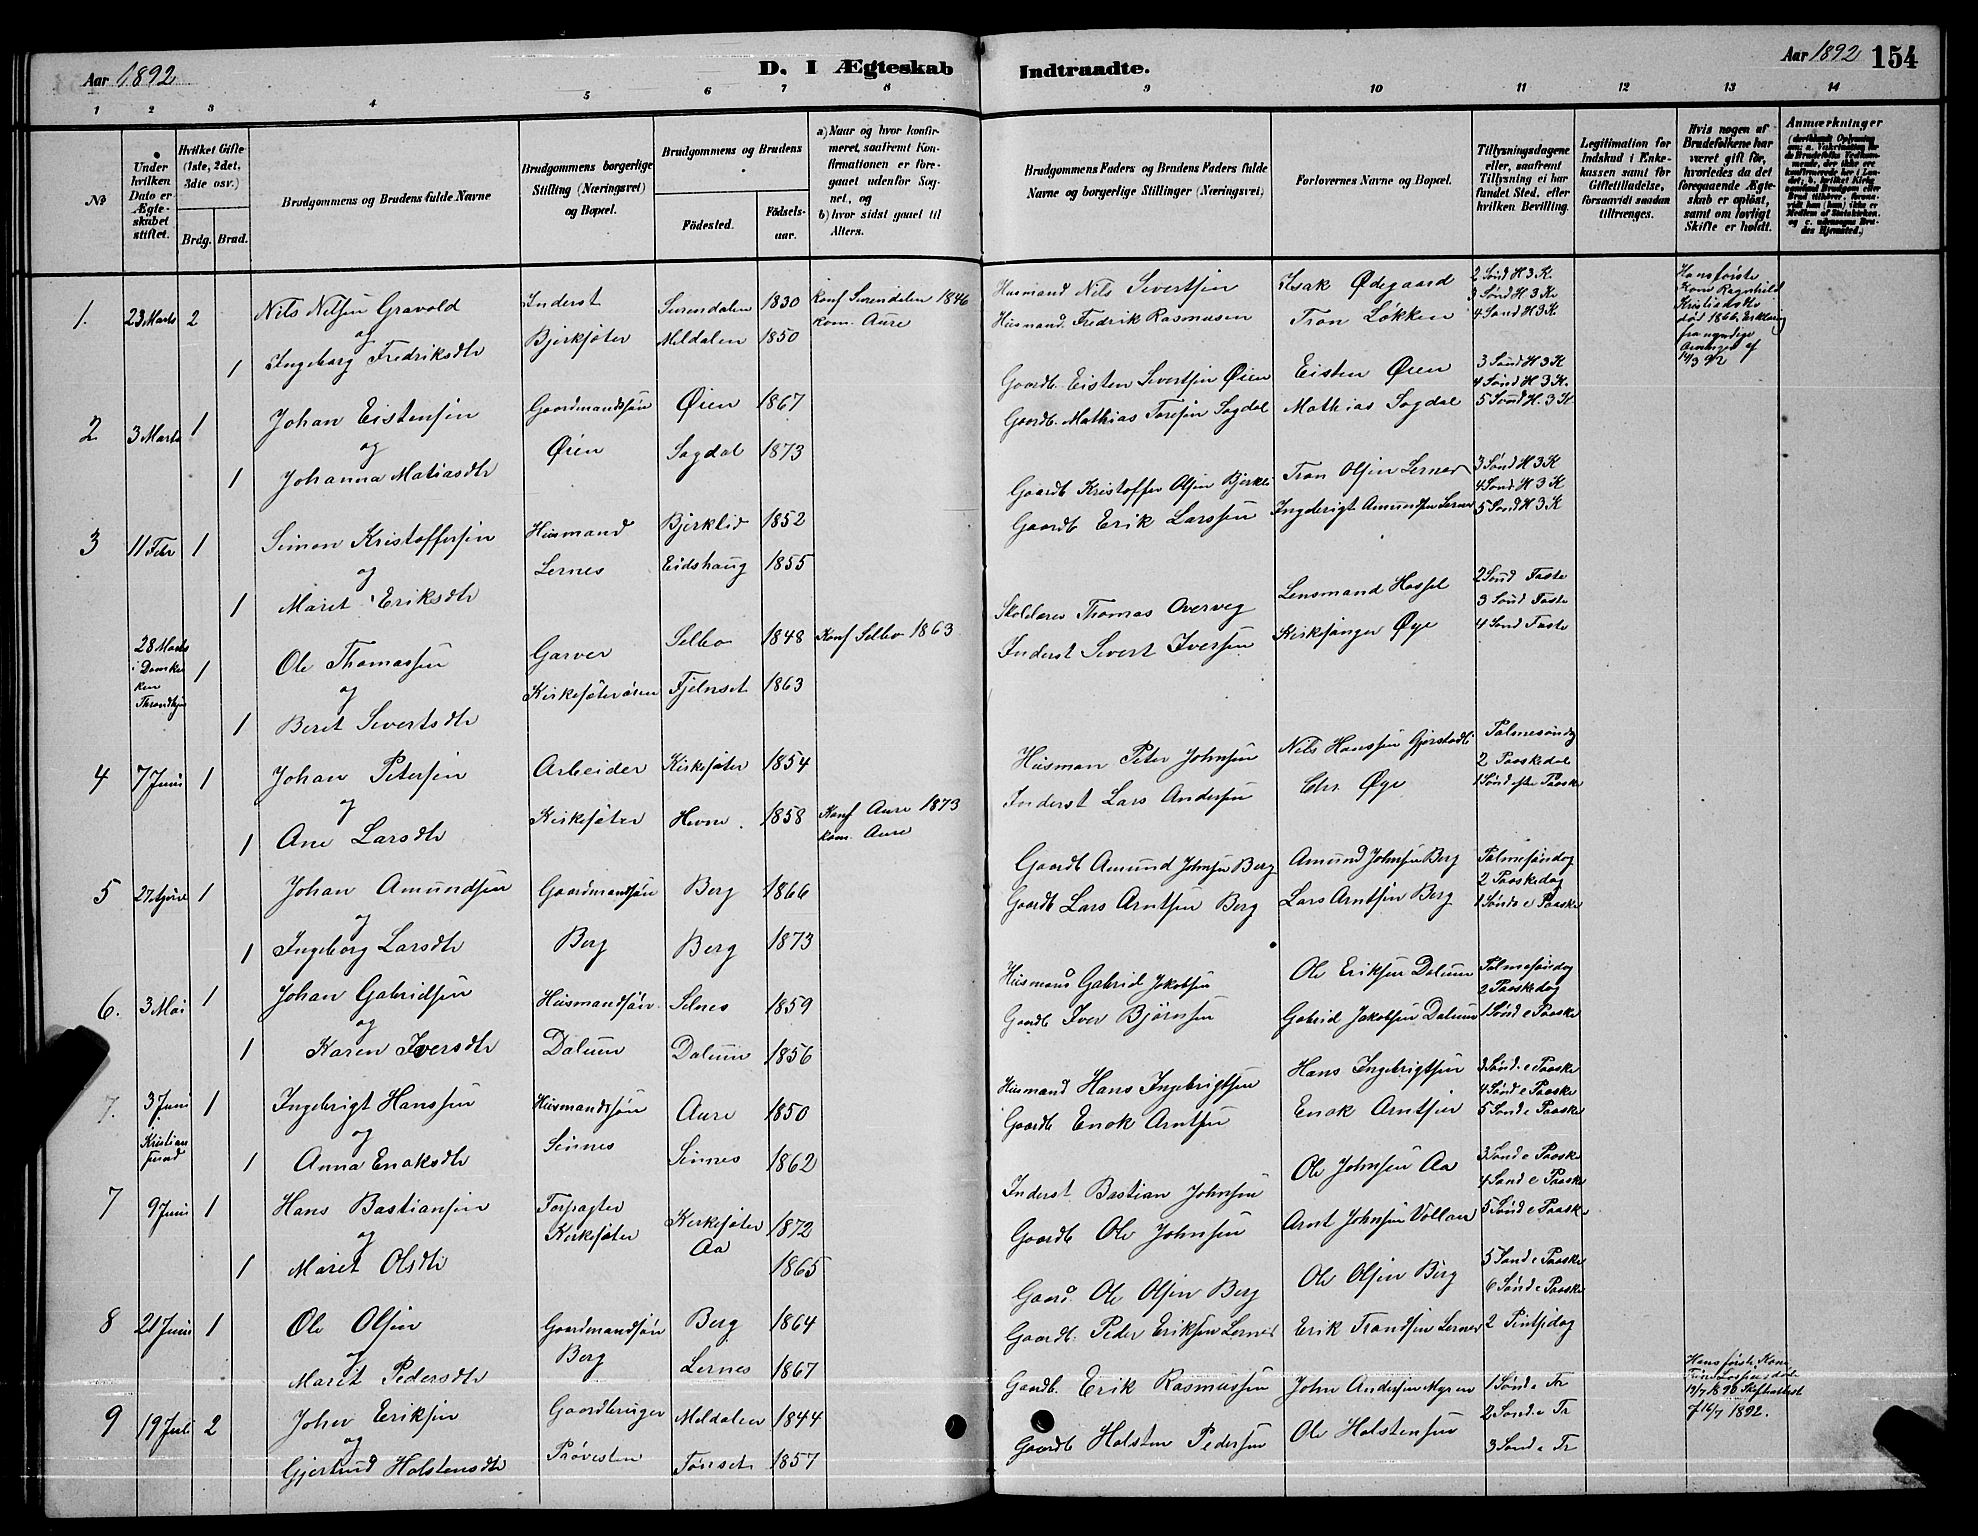 Aar 1892
D. I Ægteskab Indtraadte.
Aar 1892 154
1 2 3 4 5 6 7 8 9 10 11 12 13 14
No
Under hvilken Dato er Ægteskabet stiftet.
Hvilket Gifte (1ste, 2det, 3die osv.)
Brdg. Brud.
Brudgommens og Brudens fulde Navne
Brudgommens borgerlige Stilling (Næringsvei) og Bopæl.
Brudgommens og Brudens
Födested. Födselsaar.
a) Naar og hvor konfirmeret, saafremt Konfirmationen er foregaaet udenfor Sognet, og
b) hvor sidst gaaet til Alters.
Brudgommens Faders og Brudens Faders fulde Navne og borgerlige Stillinger (Næringsvei)
Forlovernes Navne og Bopæl.
Tillysningsdagene eller, saafremt Tillysning ei har fundet Sted, efter hvilken Bevilling.
Legitimation for Indskud i Enkekassen samt for Giftetilladelse, forsaavidt saadan tiltrænges.
Hvis nogen af Brudefolkene har været gift för, hvorledes da det foregaaende Ægteskab er oplöst, samt om lovligt Skifte er holdt.
Anmærkninger
1. 23 Marts 2 Nils Nilsen Gravold Inderst Surendalen 1830 Konf Surendalen 1846
og Bjerksæter kom. Aure
1 Ingeborg Fredriksdtr Meldalen 1850
Husmand Nils Sivertsen Isak Ødegaard 2 Sønd H 3 K
3 Sønd H 3 K
Husmand Fredrik Rasmusen Tron Løkken 4 Sønd H 3 K
Hans første Kone Ragnhild Kristiansdtr død 1866.
2 3 Marts 1 Johan Eistensen Gaardmandssøn Øien 1867
og Øien
1 Johanna Matiasdtr Sagdal 1873
Gaardb. Eisten Sivertsen Øien Eisten Øien 3 Sønd H 3 K
4 Sønd H 3 K.
Gaardb. Mathias Toresen Sagdal Mathias Sagdal 5 Sønd H. 3 K
3 11 Febr 1 Simon Kristoffersen Husmand Bjerklid 1852
og Lernes
1 Maret Eriksdtr Eidshaug 1855
Gaardb Kristoffer Olsen Bjerkli Tron Olsen Lernes 3 Sønd H 3 K
4 Sønd H 3 K
Gaardb Erik Larssen Ingebrigt Amundsen Lernes 5 Sønd H 3 K
28 Marts i Domkirken Throndhjem 1 Ole Thomassen Garver Selbo 1848 Konf Selbo 1863
og Kirkesæterøren
1 Beret Sivertsdtr Fjelnset 1863
Skolelærer Thomas Overveg Lensmand Hassel 2 Sønd Faste
3 Sønd Faste
Inderst Sivert Iversen Kirkesanger Øye 4 Sønd Faste
4 7 Juni 1 Johan Petersen Arbeider Kirkesæter 1854
og Kirkesæter
1 Ane Larsdtr Hevne 1858 Konf Aure 1873
kom. Aure
Husman Peter Johnsen Nils Hanssen Palmesøndag
2 Paaskedal
Inderst Lars Andersen Chr. Øye 1 Sønd efter Paaske
5 27 April 1 Johan Amundsen Gaardmandsøn Berg 1866
og
1 Ingeborg Larsdtr Berg Berg 1873
Gaardb Amund Johnsen Berg Amund Johnsen Berg Palmesøndag
2 Paaskedag
Gaardb Lars Arntsen Berg Lars Arntsen Berg 1 Sønd e Paaske
6. 3 Mai 1 Johan Gabrielsen Husmandsøn Selnes 1859
og
1 Karen Iversdtr Dalum Dalum 1856
Husmand Gabriel Jakobsen Ole Eriksen Dalum Palmesøndag
2 Paaskedag
Gaardb Iver Bjørnsen Gabriel Jakobsen Dalum 1 Sønd e Paaske
7. 3 Juni Kristiansund 1 Ingebrigt Hanssen Husmandssøn Aure 1850
og Sinnes
1 Anna Enoksdtr Sinnes 1862
Husmand Hans Ingebrigtsen Hans Ingebrigtsen 3 Sønd e Paaske
4 Sønd e Paaske
Gaardb Enok Arntsen Enok Arntsen 5 Sønd e Paaske
7 9 Juni 1 Hans Bastiansen Forpagter Kirkesæter 1872
og Kirkesæter Aa
1 Maret Olsdtr 1865
Inderst. Bastian Johnsen Ole Johnsen Aa 3 Sønd e Paaske
4 Sønd e Paaske
Gaardb Ole Johnsen Arnt Johnsen Vollan 5 Sønd e Paaske
8 21 Juni 1 Ole Olsen Gaardmandsøn Berg 1864
og Berg
1 Maret Pedersdtr Lernes 1867
Gaard. Ole Olsen Berg Ole Olsen Berg 5 Sønd e Paaske
6 Sønd e Paaske
Gaardb. Peder Eriksen Lernes Erik Trondsen Lernes 2 Pintsedag
9 19 Juli 2 John Eriksen Gaardbruger Meldalen 1844
og Prøvesten
Gjertrud Holstensdtr Tønset 1857
Gaardb. Erik Rasmussen John Andersen Myren 1 Sønd e Tr
2 Sønd e Tr
Gaardb Holsten Pedersen Ole Holstensen 3 Sønd e Tr
Hans første Kone 1892.